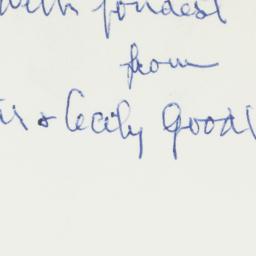 with fondest
from
& Cecily Good